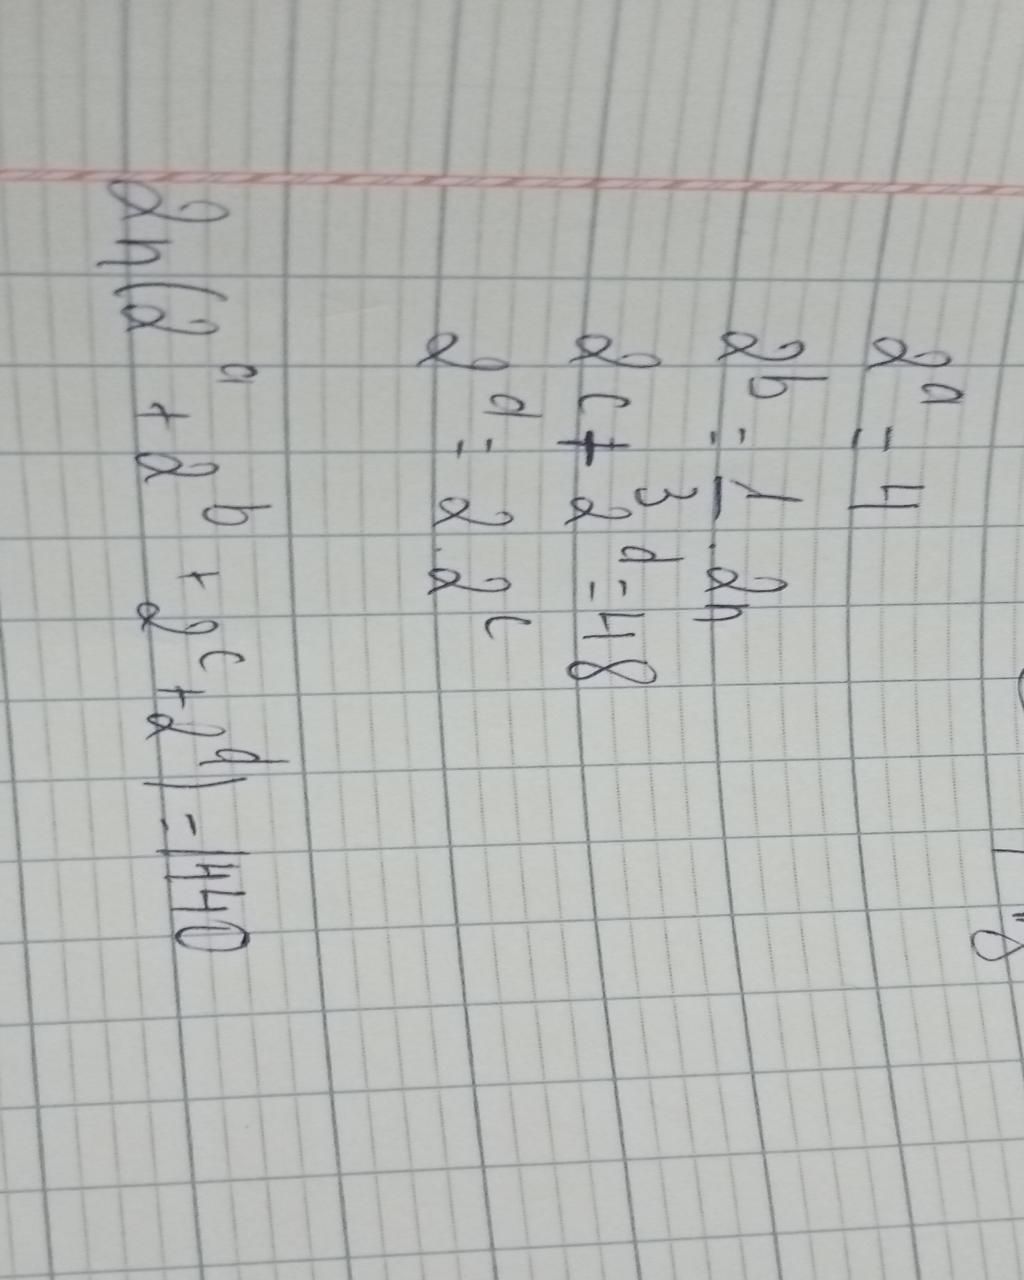 2^a = 4
2^b = 1/3 . 2n
2^c + 2^d = 48
2^d = 2.2^c
2n(2^a + 2^b + 2^c + 2^d) = 1440